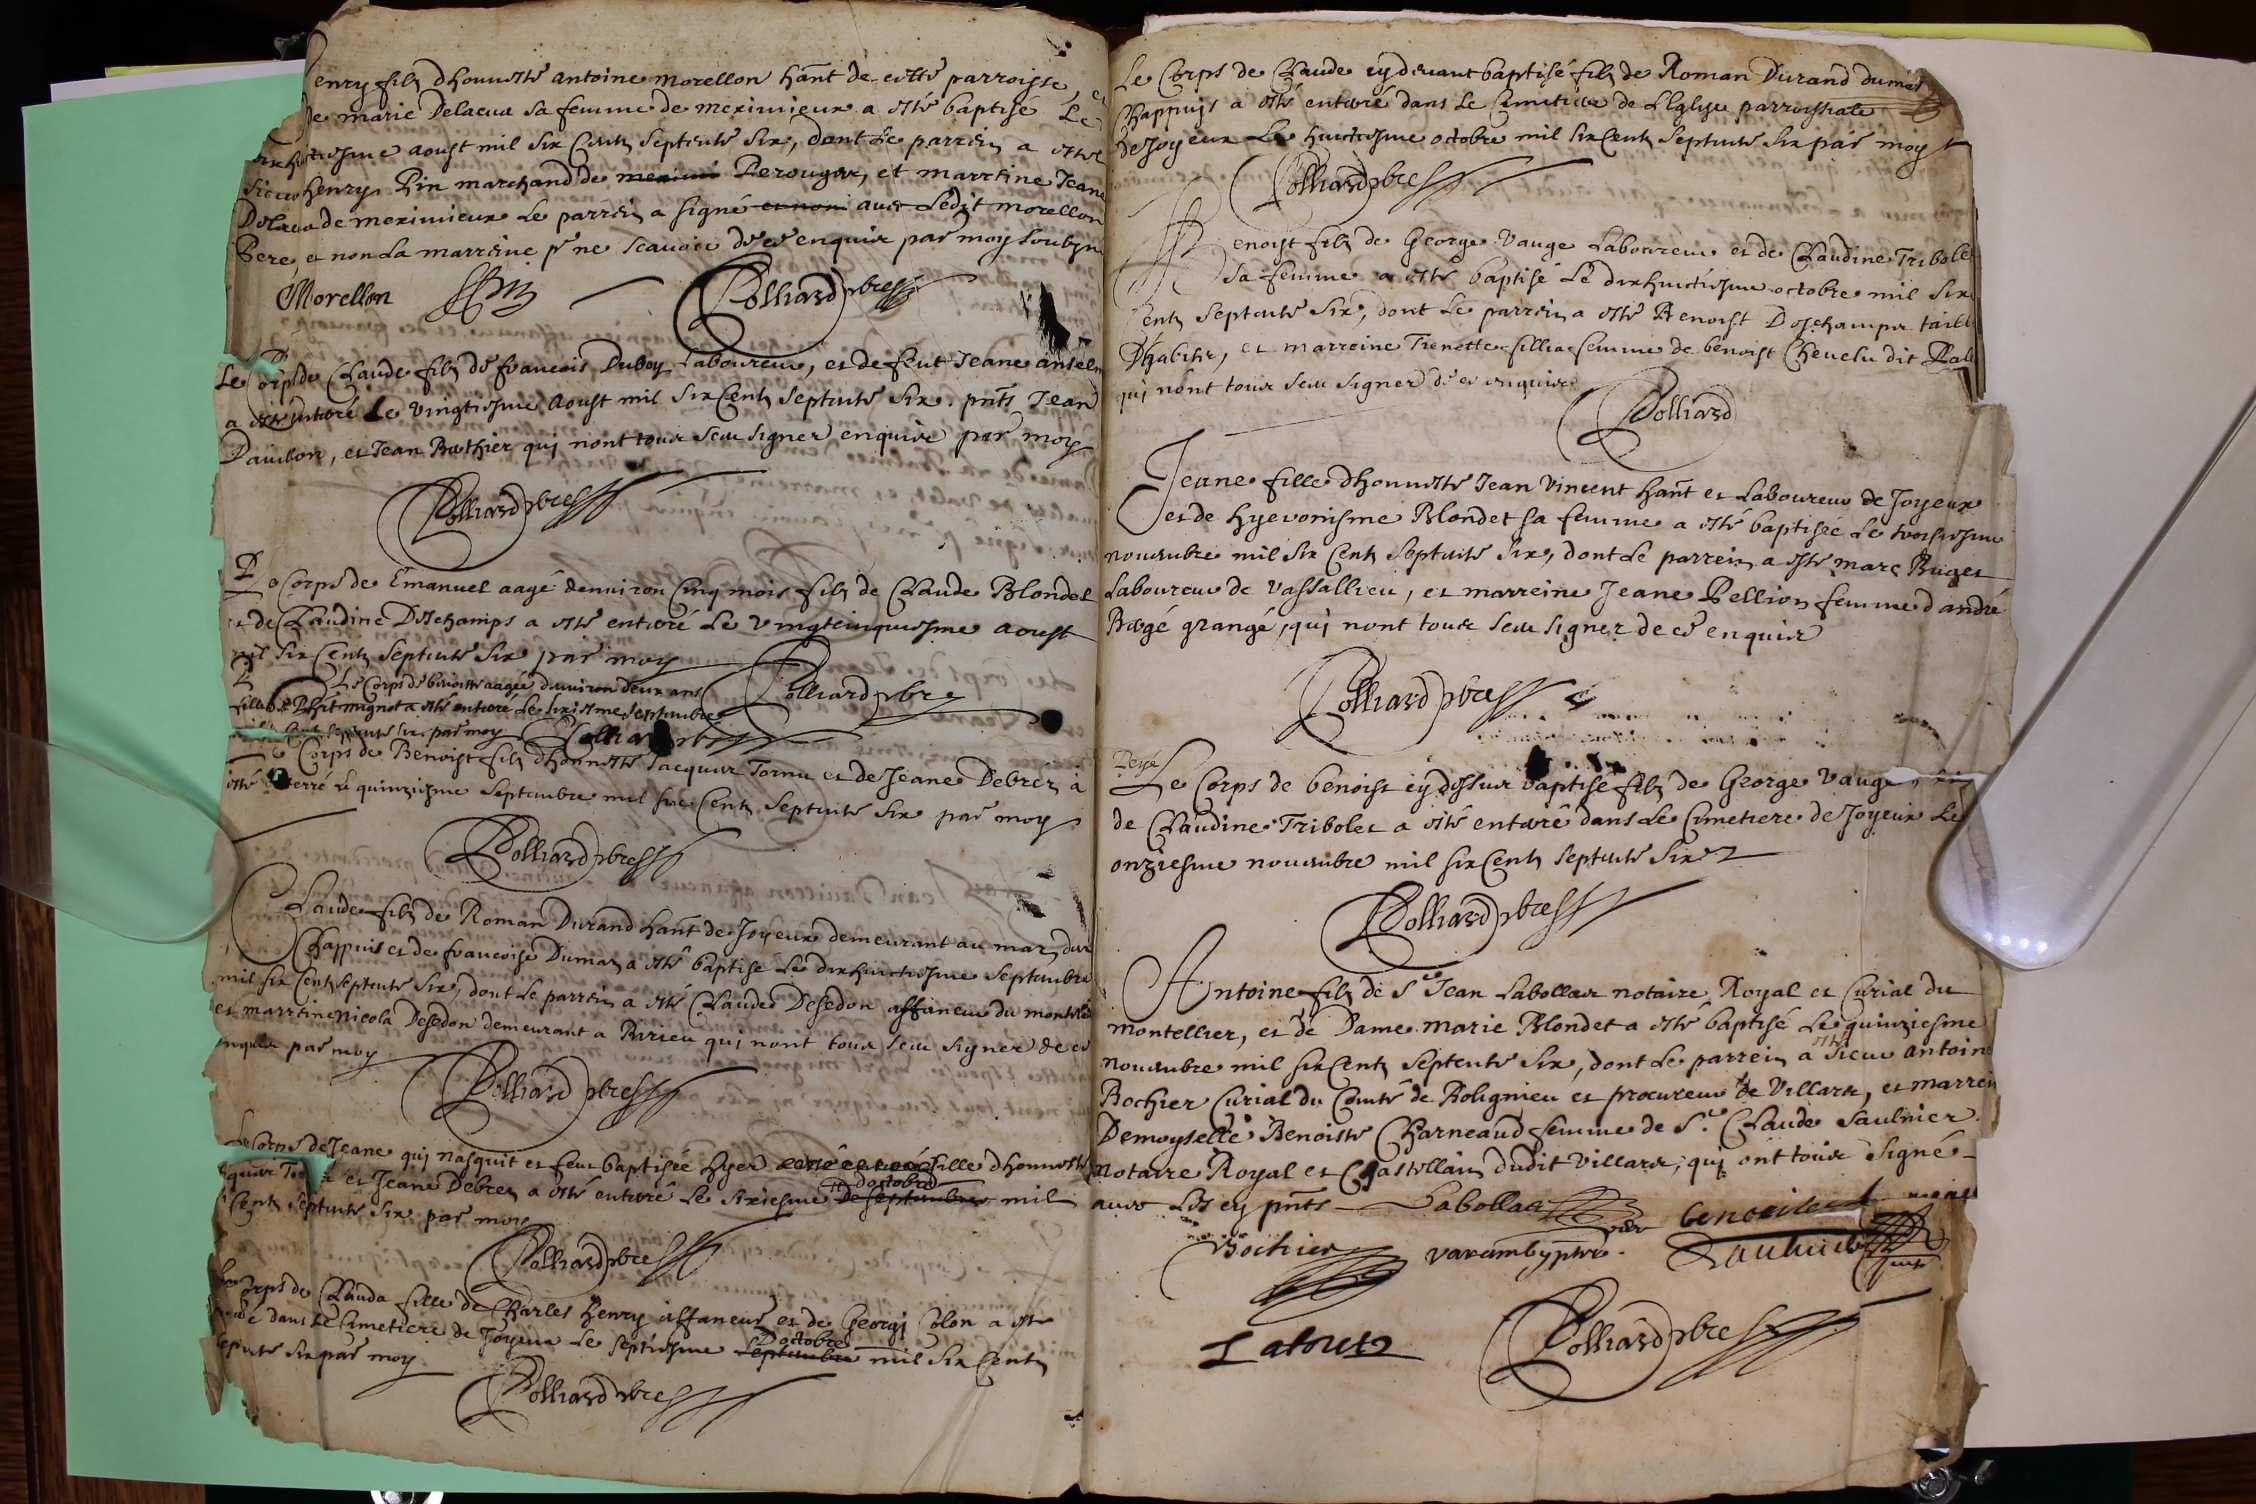 Henry fils dhonneste antoine morellon hant de ceste parroisse, et
de marie Delacua sa femme de meximieux a esté baptisé Le
dixhuictiesme aoust mil six Cents septente six, dont Le parrein a esté
sieur henry Pin marchand de Perouges, et marreine Jeane
Delacua de meximieux Le parrein a signé avec Ledit morellon
Pere, et non La marreine pr ne scavoir de ce enquise par moy soubzné
Morellon Pin Polliard pbre
Le Corps de Claude fils de francois Duboy Laboureur, et de feue Jeane anselm
a esté enterré Le vingtiesme Aoust mil six Cents septente six. pnts Jean
Davillon, et Jean Berthier qui nont tous sceu signer enquis par moy
Polliard pbre
Le Corps de Emanuel aagé denviron Cinq mois fils de Claude Blondel
et de Claudine Deschamps a esté enterré Le vingtcinquiesme aoust
mil six Cents septente six par moy Polliard pbre
Le Corps de benoiste aagée denviron deux ans
fille de mignot a esté enterré Le sixiesme septembre
septente six par moy Polliard pbre
Le Corps de Benoist fils dhonneste Jacques Tornu et de Jeane Debrez à
esté enterré Le quinziesme septembre mil six Cents septente six par moy
Polliard pbre
Claude fils de Roman Durand hant de Joyeux demeurant au mas du
Chappuis et de francoise Dumas a esté baptisé Le dixhuictiesme septembre
mil six Cents septente six, dont Le parrein a esté Claude Desedon affaneur du montelier
et marreine Nicola Desedon demeurant a Birieu qui nont tous sceu signer de ce
enquis par moy
Polliard pbre
Le Corps de Jeane qui nasquit et feut baptisée hyer fille dhonneste
et Jeane Debrez a esté enterré Le sixiesme doctobre De septembre mil
six Cents septente six par moy
Polliard pbre
Le Corps de Clauda fille de Charles henry affaneur et de Georgi Colon a esté
enterré dans Le Cimetiere de Joyeux Le septiesme Doctobre septembre mil six Cents
septente six par moy
Polliard pbre
Le Corps de Claude cy devant baptisé fils de Roman Durand du mas
Chappuis a esté enterré dans Le Cimetiere de LEglise parroissiale
de Joyeux Le huictiesme octobre mil six Cents septente six par moy
Polliard pbre
Benoist fils de George Vauge Laboureur et de Claudine Tribolet
sa femme a esté baptisé Le dixhuictiesme octobre mil six
Cents septente six, dont Le parrein a esté Benoist Deschamps
et marreine Pienette fillia femme de benoist Chevelu dit
qui nont tous sceu signer de ce enquis
Polliard
Jeane fille dhonneste Jean Vincent hant et Laboureur de Joyeux
et de hyeronisme Blondet sa femme a esté baptisée Le troisiesme
novembre mil six Cents septente six, dont Le parrein a esté marc Buget
Laboureur de Vassallieu, et marreine Jeane Pellion femme d andré
Bergé grangé, qui nont tous sceu signer de ce enquis
Polliard pbre
Le Corps de benoist cy dessus baptisé fils de George Vauge,
de Claudine Tribolet a esté enterré dans Le Cimetiere de Joyeux Le
onziesme novembre mil six Cents septente six
Polliard pbre
Antoine fils de Sr Jean Labollas notaire Royal et Curial du
montellier, et de Dame marie Blondet a esté baptisé Le quinziesme
novembre mil six Cents septente six, dont Le parrein a esté sieur antoine
Bochier Curial du Comté de Rolignieu et procureur de Villars, et marreine
Demoyselle Benoiste Charneaud femme de Sr. Claude Saulnier
notaire Royal et Chastellain dudit Villars, qui ont tous signé
avec Les cy pnts Labollas
Bochier
Polliard pbre